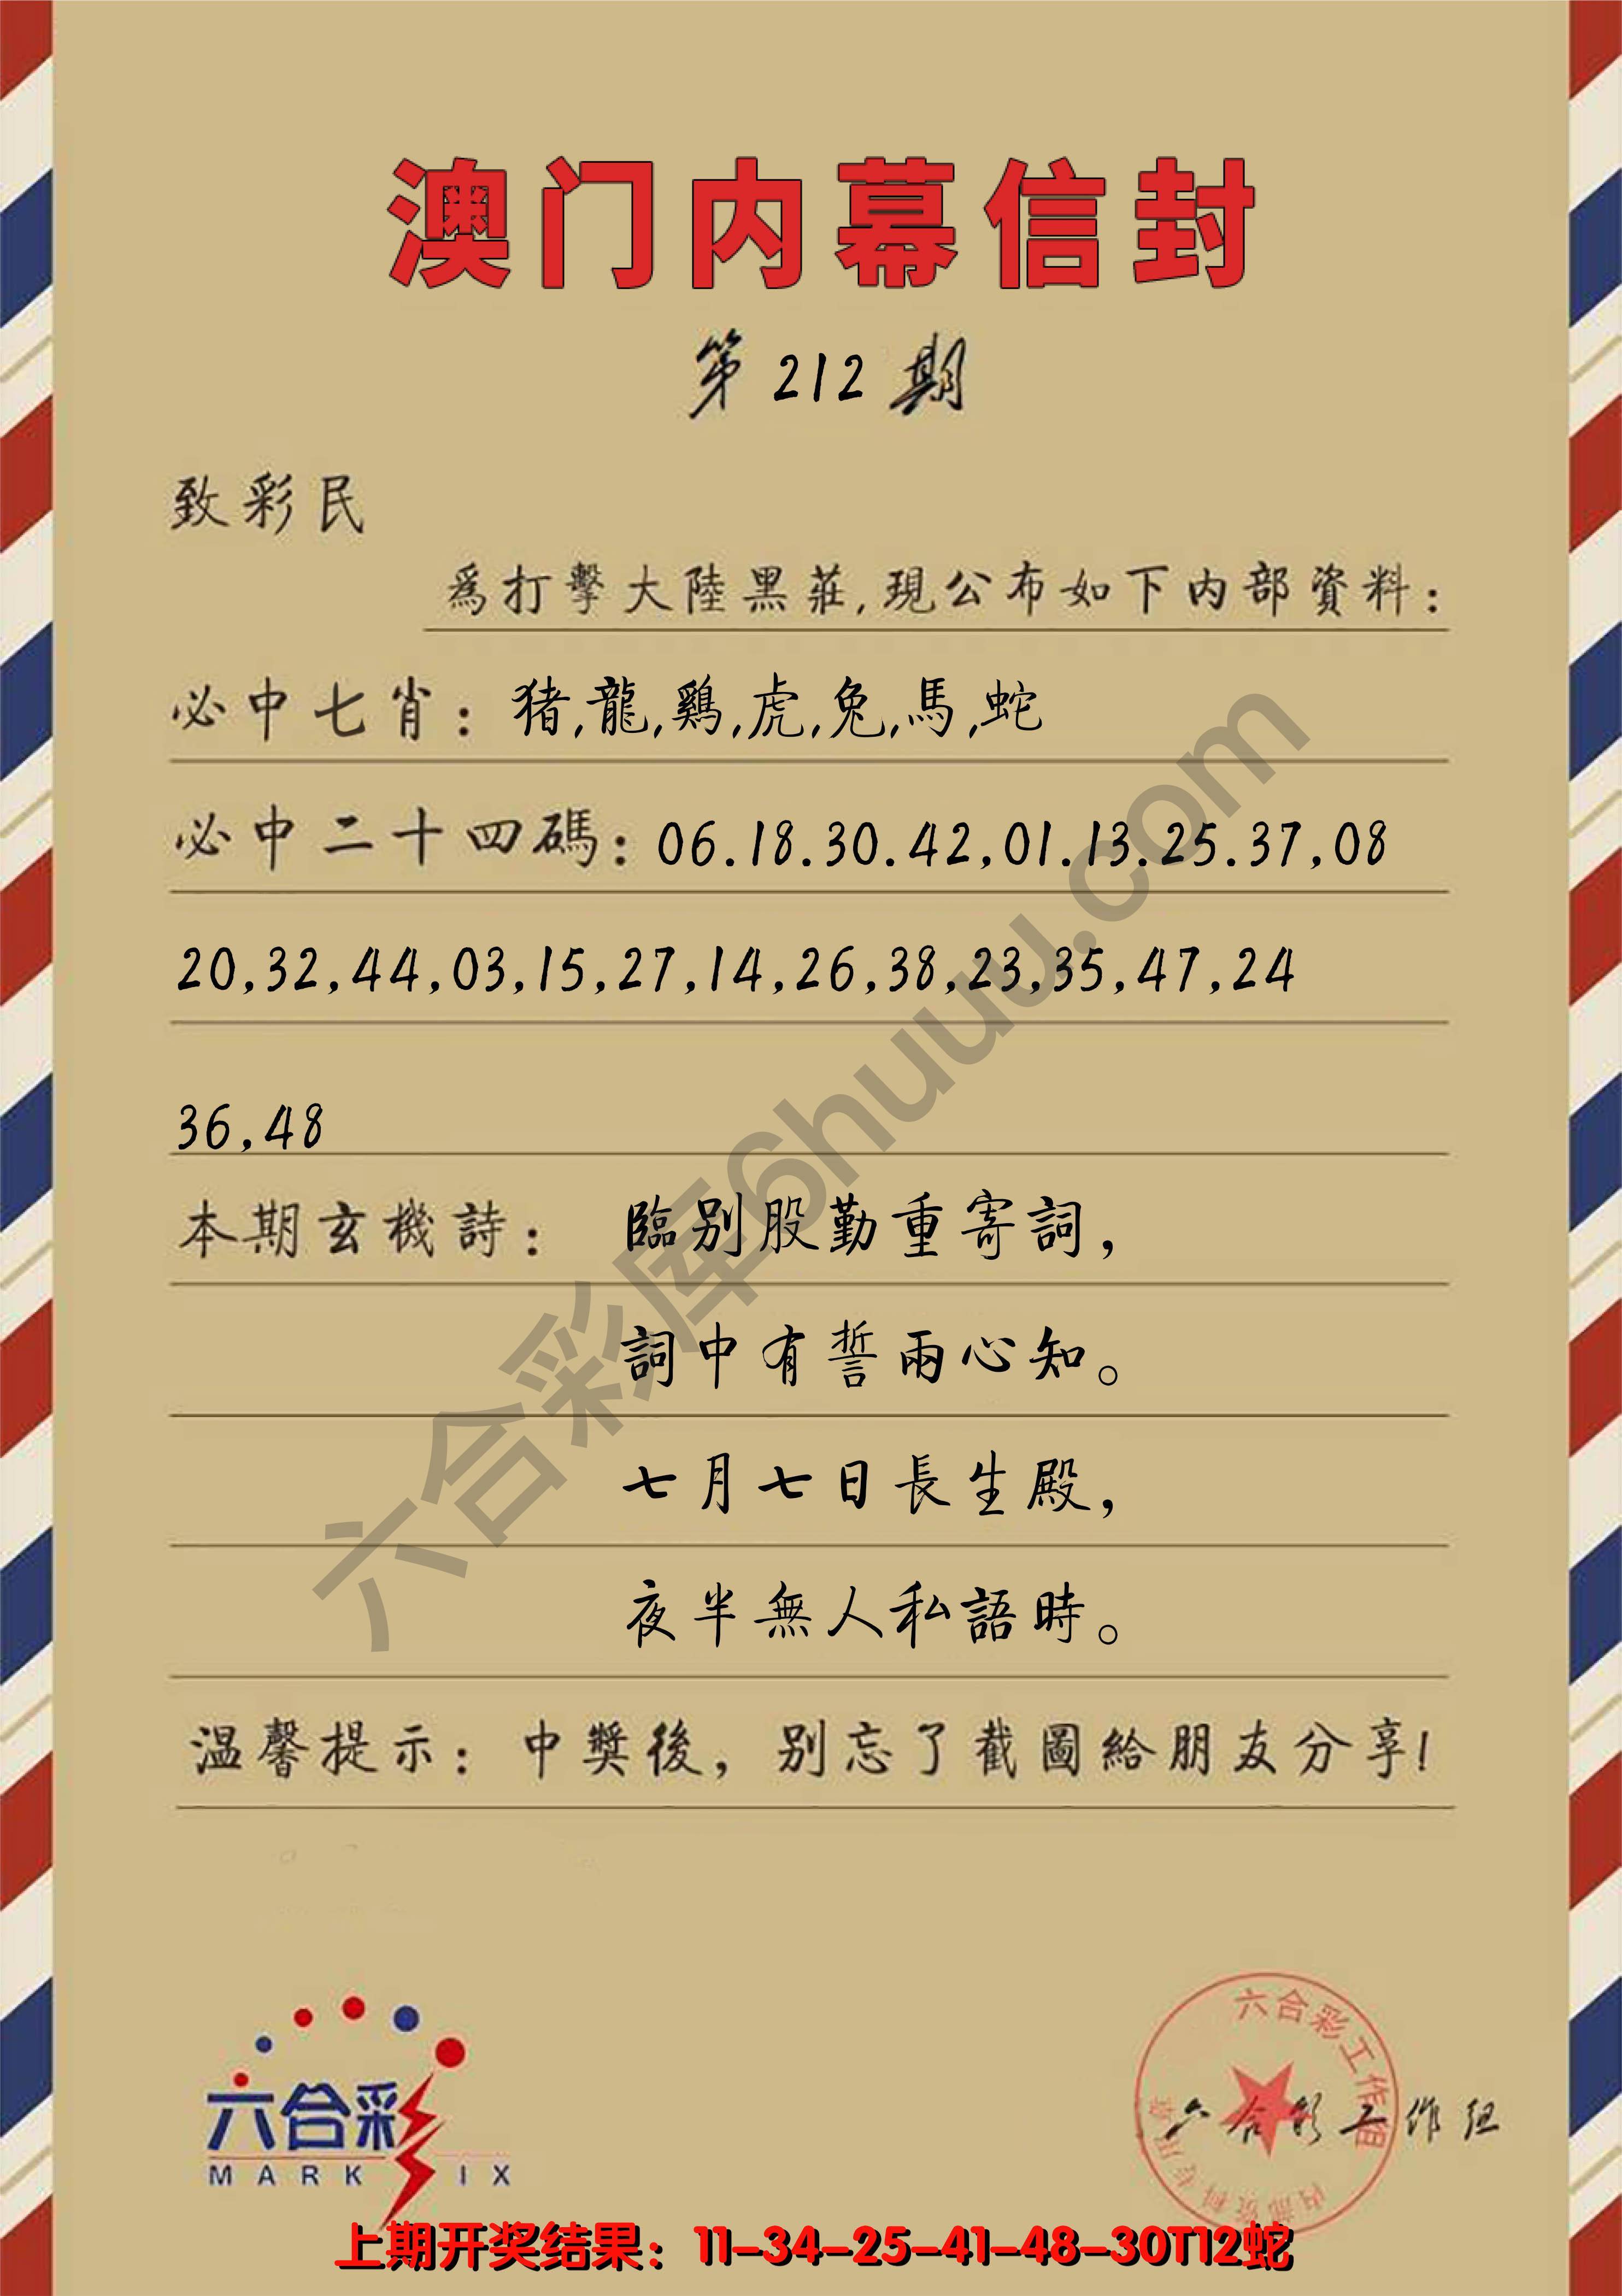 澳门内幕信封
第212期
致彩民
爲打擊大陸黑莊,現公布如下内部資料:
必中七肖:猪,龍,鷄,虎,兔,馬,蛇
必中二十四碼:06.18.30.42,01.13.25.37,08
20,32,44,03,15,27,14,26,38,23,35,47,24
36,48
本期玄機詩: 臨别股勤重寄詞,
詞中有誓兩心知。
七月七日長生殿,
夜半無人私語時。
温馨提示:中獎後,别忘了截圖給朋友分享!
六合彩库6huuu.com
六合彩
MARK IX
六合彩工作组
内部资料专用章
六合彩工作组
上期开奖结果:11-34-25-41-48-30T12蛇